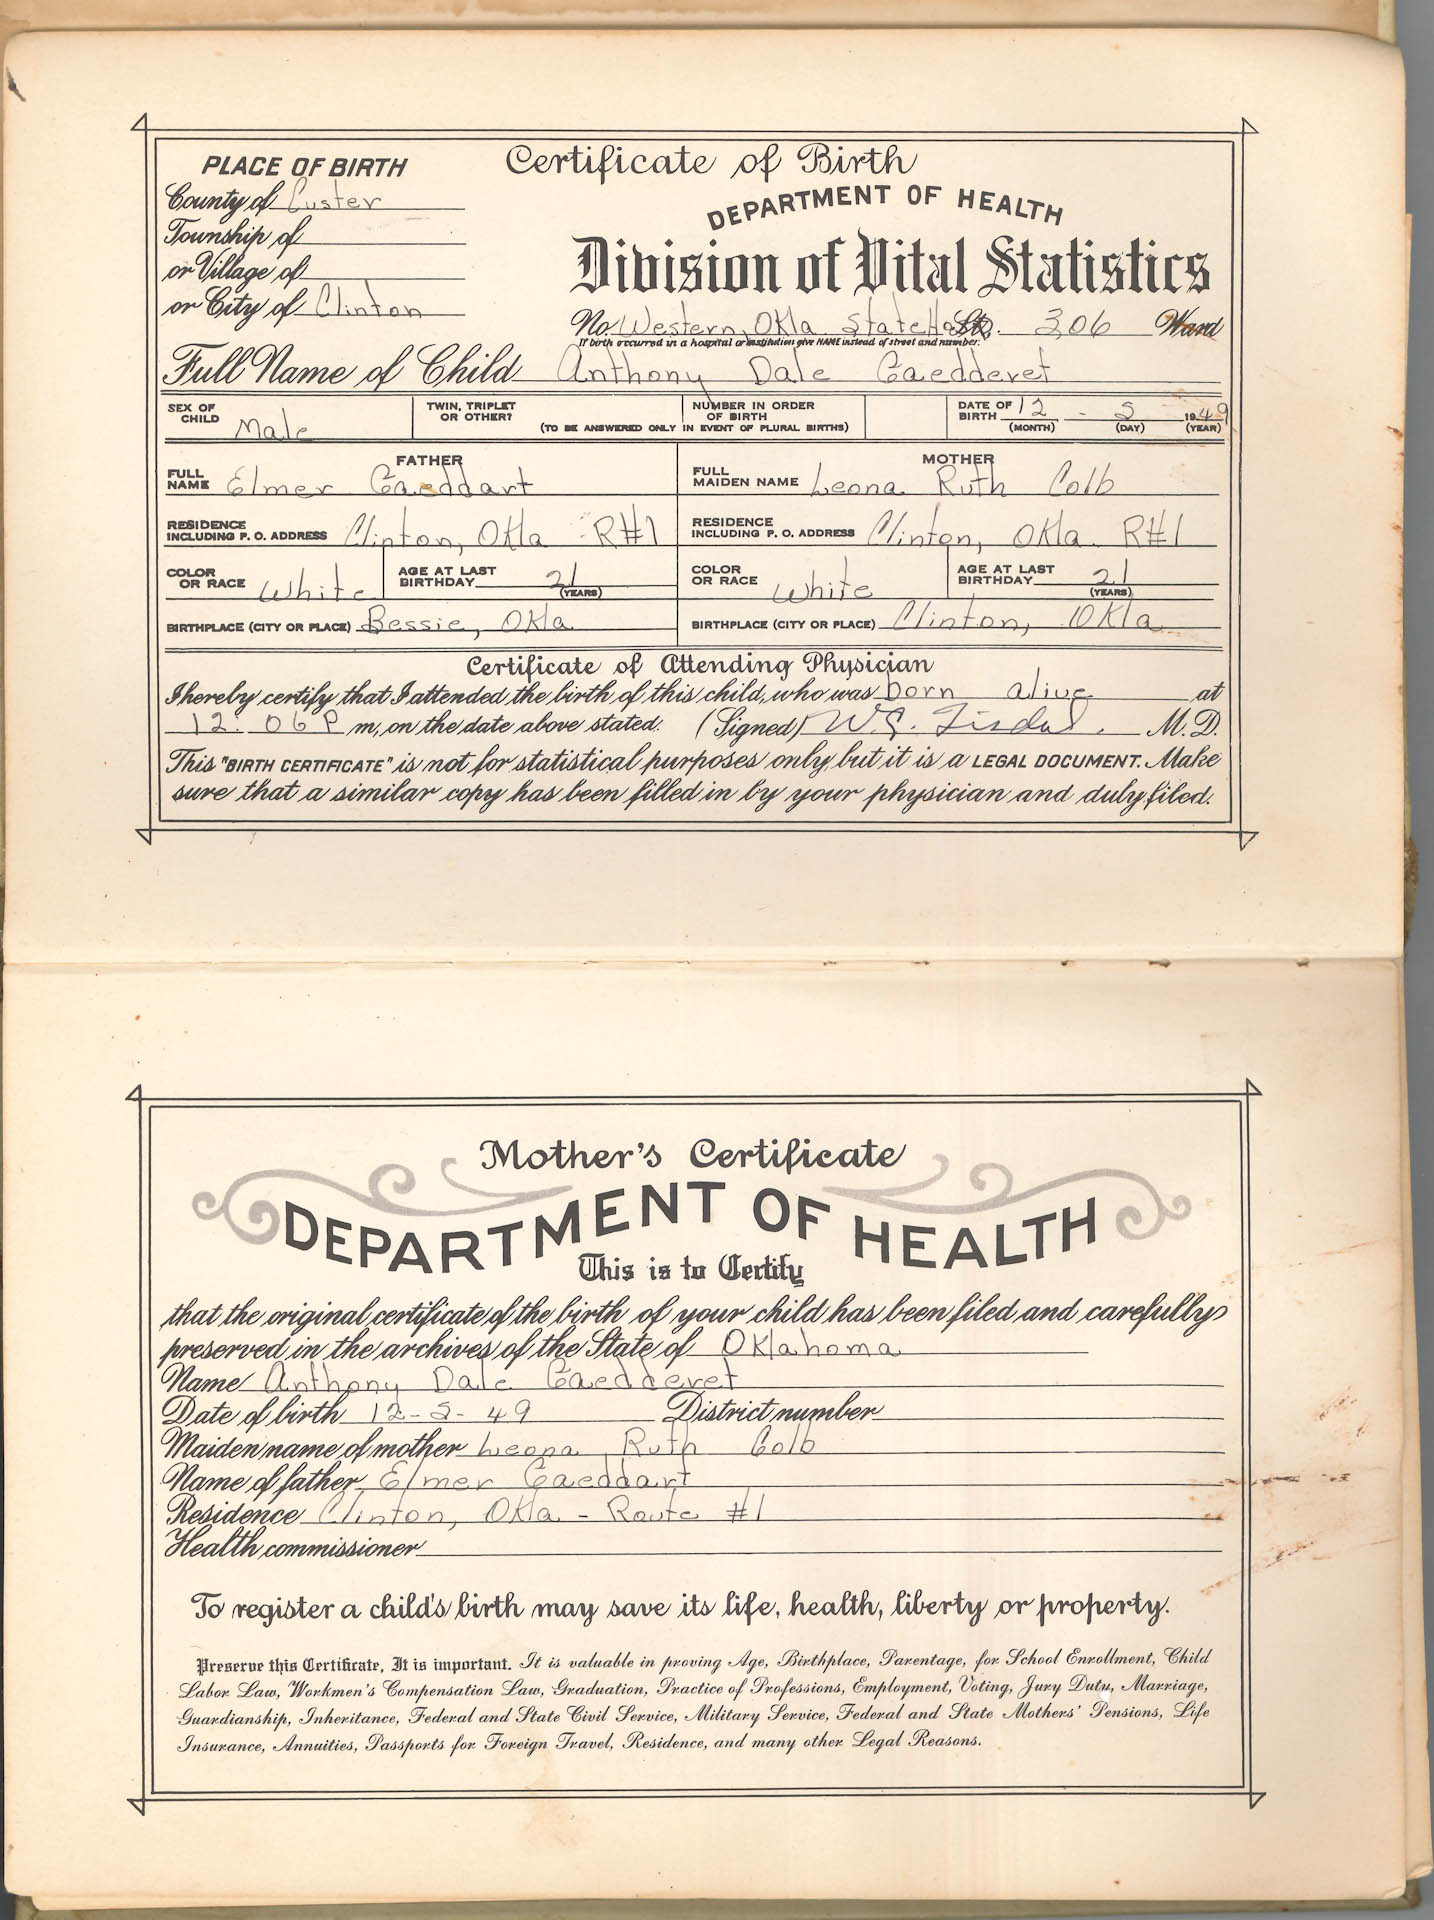 PLACE OF BIRTH
Certificate of Birth
DEPARTMENT OF HEALTH
Division of Vital Statistics
County of Custer
Township of
or Village of
or City of Clinton
No. Western Okla State Hosp. St. 306 Ward
If birth occurred in a hospital or institution give NAME instead of street and number.
Full Name of Child Anthony Dale Gaedderet
SEX OF CHILD Male
TWIN, TRIPLET OR OTHER?
NUMBER IN ORDER OF BIRTH
(TO BE ANSWERED ONLY IN EVENT OF PLURAL BIRTHS)
DATE OF BIRTH 12 - 5 1949
(MONTH) (DAY) (YEAR)
FATHER
MOTHER
FULL NAME Elmer Gaeddart
FULL MAIDEN NAME Leona Ruth Colb
RESIDENCE INCLUDING P. O. ADDRESS Clinton, Okla R#1
RESIDENCE INCLUDING P. O. ADDRESS Clinton, Okla. R#1
COLOR OR RACE White AGE AT LAST BIRTHDAY 21 (YEARS)
COLOR OR RACE White AGE AT LAST BIRTHDAY 21 (YEARS)
BIRTHPLACE (CITY OR PLACE) Bessie, Okla
BIRTHPLACE (CITY OR PLACE) Clinton, Okla
Certificate of Attending Physician
I hereby certify that I attended the birth of this child, who was born alive at
12:06 P m, on the date above stated. (Signed) M. D.
This "BIRTH CERTIFICATE" is not for statistical purposes only, but it is a LEGAL DOCUMENT. Make
sure that a similar copy has been filled in by your physician and duly filed.
Mother's Certificate
DEPARTMENT OF HEALTH
This is to Certify
that the original certificate of the birth of your child has been filed and carefully
preserved in the archives of the State of Oklahoma
Name Anthony Dale Gaedderet
Date of birth 12-5-49 District number
Maiden name of mother Leona Ruth Colb
Name of father Elmer Gaeddart
Residence Clinton, Okla - Route #1
Health commissioner
To register a child's birth may save its life, health, liberty or property.
Preserve this Certificate, It is important. It is valuable in proving Age, Birthplace, Parentage, for School Enrollment, Child
Labor Law, Workmen's Compensation Law, Graduation, Practice of Professions, Employment, Voting, Jury Duty, Marriage,
Guardianship, Inheritance, Federal and State Civil Service, Military Service, Federal and State Mothers' Pensions, Life
Insurance, Annuities, Passports for Foreign Travel, Residence, and many other Legal Reasons.